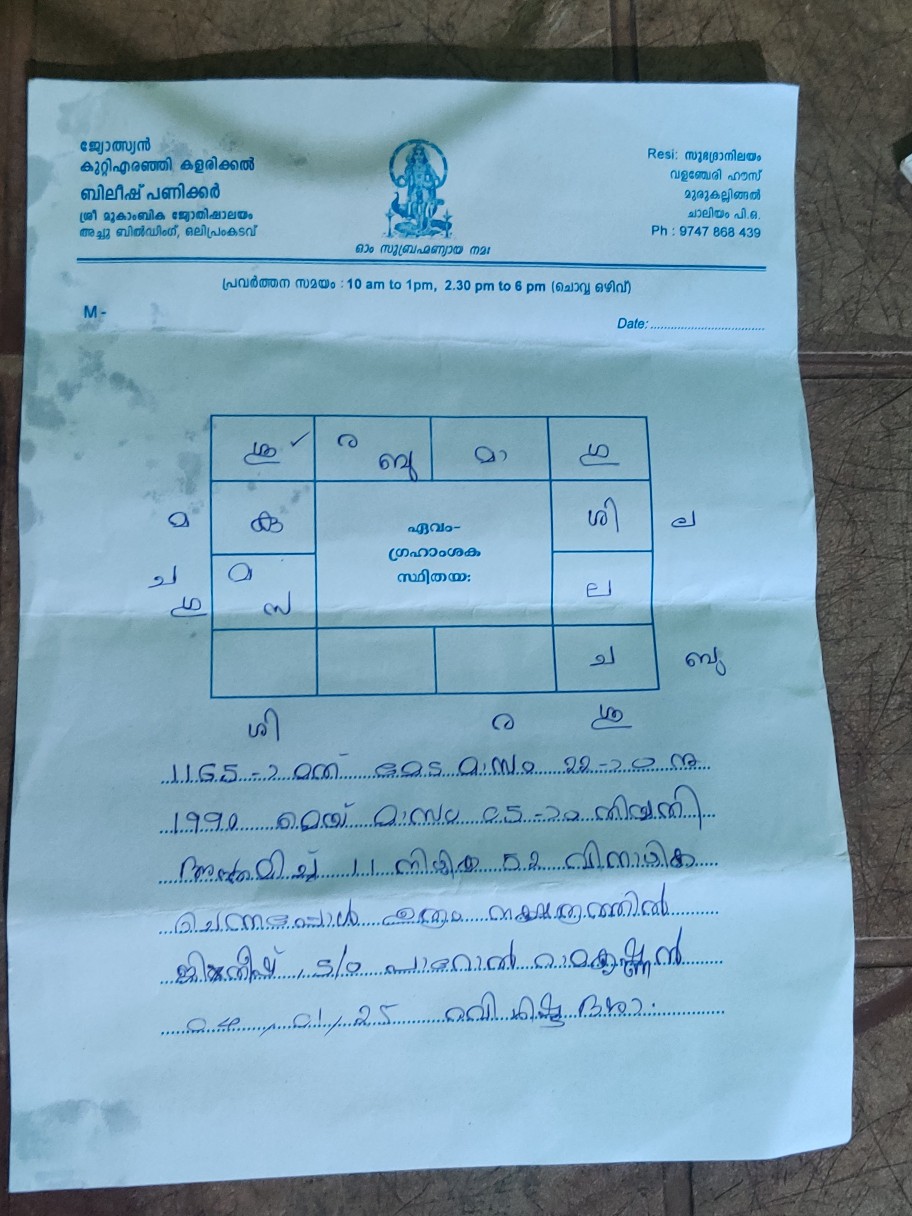 ജ്യോത്സ്യൻ
കുറ്റിഎരഞ്ഞി കളരിക്കൽ
ബിലീഷ് പണിക്കർ
ശ്രീ മൂകാംബിക ജ്യോതിഷാലയം
അച്ചു ബിൽഡിംഗ്, ഒലിപ്രംകടവ്
ഓം സുബ്രഹ്മണ്യായ നമഃ
Resi: സുഭദ്രാനിലയം
വളഞ്ചേരി ഹൗസ്
മുരുകല്ലിങ്ങൽ
ചാലിയം പി.ഒ.
Ph : 9747 868 439
പ്രവർത്തന സമയം : 10 am to 1pm, 2.30 pm to 6 pm (ചൊവ്വ ഒഴിവ്)
M-
Date:
ശു ര ബു മാ ഗു
മ കു ശി ല
ഏവം-
ഗ്രഹാംശക
സ്ഥിതയഃ
ച ഗു മ സ ല
ച ബു
ശി ര ശു
1165-ാമത് മേട മാസം 22-ാം നു
1990 മെയ് മാസം 05-ാം തിയ്യതി
അസ്തമിച്ച് 11 നാഴിക 52 വിനാഴിക
ചെന്നപ്പോൾ ഉത്രം നക്ഷത്രത്തിൽ
ജിജീഷ്, S/o രാമകൃഷ്ണൻ
04/01/25 രവി ശിഷ്ട ദശാ.